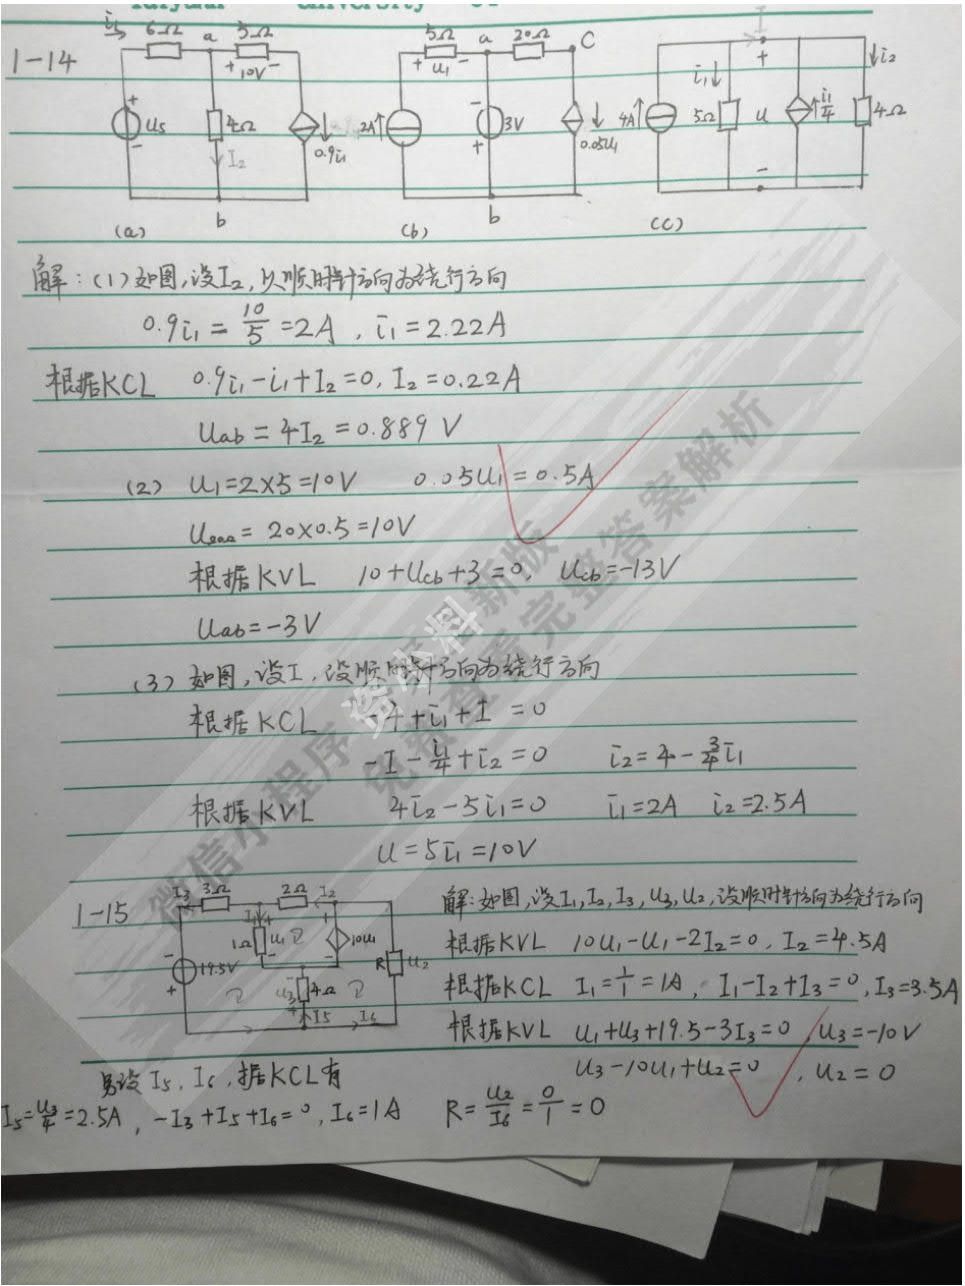 University
1-14
i₁ 6Ω a 5Ω
+ 10V -
+ Us -
4Ω
I₂
0.9i₁
b
(a)
5Ω a 20Ω C
+ u₁ -
2A
- 3V +
0.05u₁
b
(b)
I
4A i₁ 5Ω + u - i₁/4 i₂ 4Ω
(c)
解:(1)如图,设I₂,以顺时针方向为绕行方向
0.9i₁ = 10/5 = 2A , i₁ = 2.22A
根据KCL 0.9i₁ - i₁ + I₂ = 0, I₂ = 0.22A
Uab = 4I₂ = 0.889 V
(2) U₁ = 2×5 = 10V 0.05U₁ = 0.5A
= 20×0.5 = 10V
根据KVL 10 + Ucb + 3 = 0, Ucb = -13V
Uab = -3V
(3) 如图,设I,设顺时针方向为绕行方向
根据KCL -4 + i₁ + I = 0
-I - i₁/4 + i₂ = 0 i₂ = 4 - 3/4 i₁
根据KVL 4i₂ - 5i₁ = 0 i₁ = 2A i₂ = 2.5A
U = 5i₁ = 10V
1-15
I₃ 3Ω 2Ω I₂
I₁ + 1Ω u₁ - + 10u₁ - R u₂
- 19.5V +
u₃ 4Ω
I5 I6
解:如图,设I₁,I₂,I₃,U₃,U₂,设顺时针方向为绕行方向
根据KVL 10U₁ - U₁ - 2I₂ = 0, I₂ = 4.5A
根据KCL I₁ = 1/1 = 1A, I₁ - I₂ + I₃ = 0, I₃ = 3.5A
根据KVL U₁ + U₃ + 19.5 - 3I₃ = 0, U₃ = -10V
U₃ - 10U₁ + U₂ = 0, U₂ = 0
另设I5, I6, 据KCL有
I5 = U₃/4 = 2.5A, -I₃ + I5 + I6 = 0, I6 = 1A R = U₂/I6 = 0/1 = 0
微信小程序
资小料
新版
免费查看完整答案解析